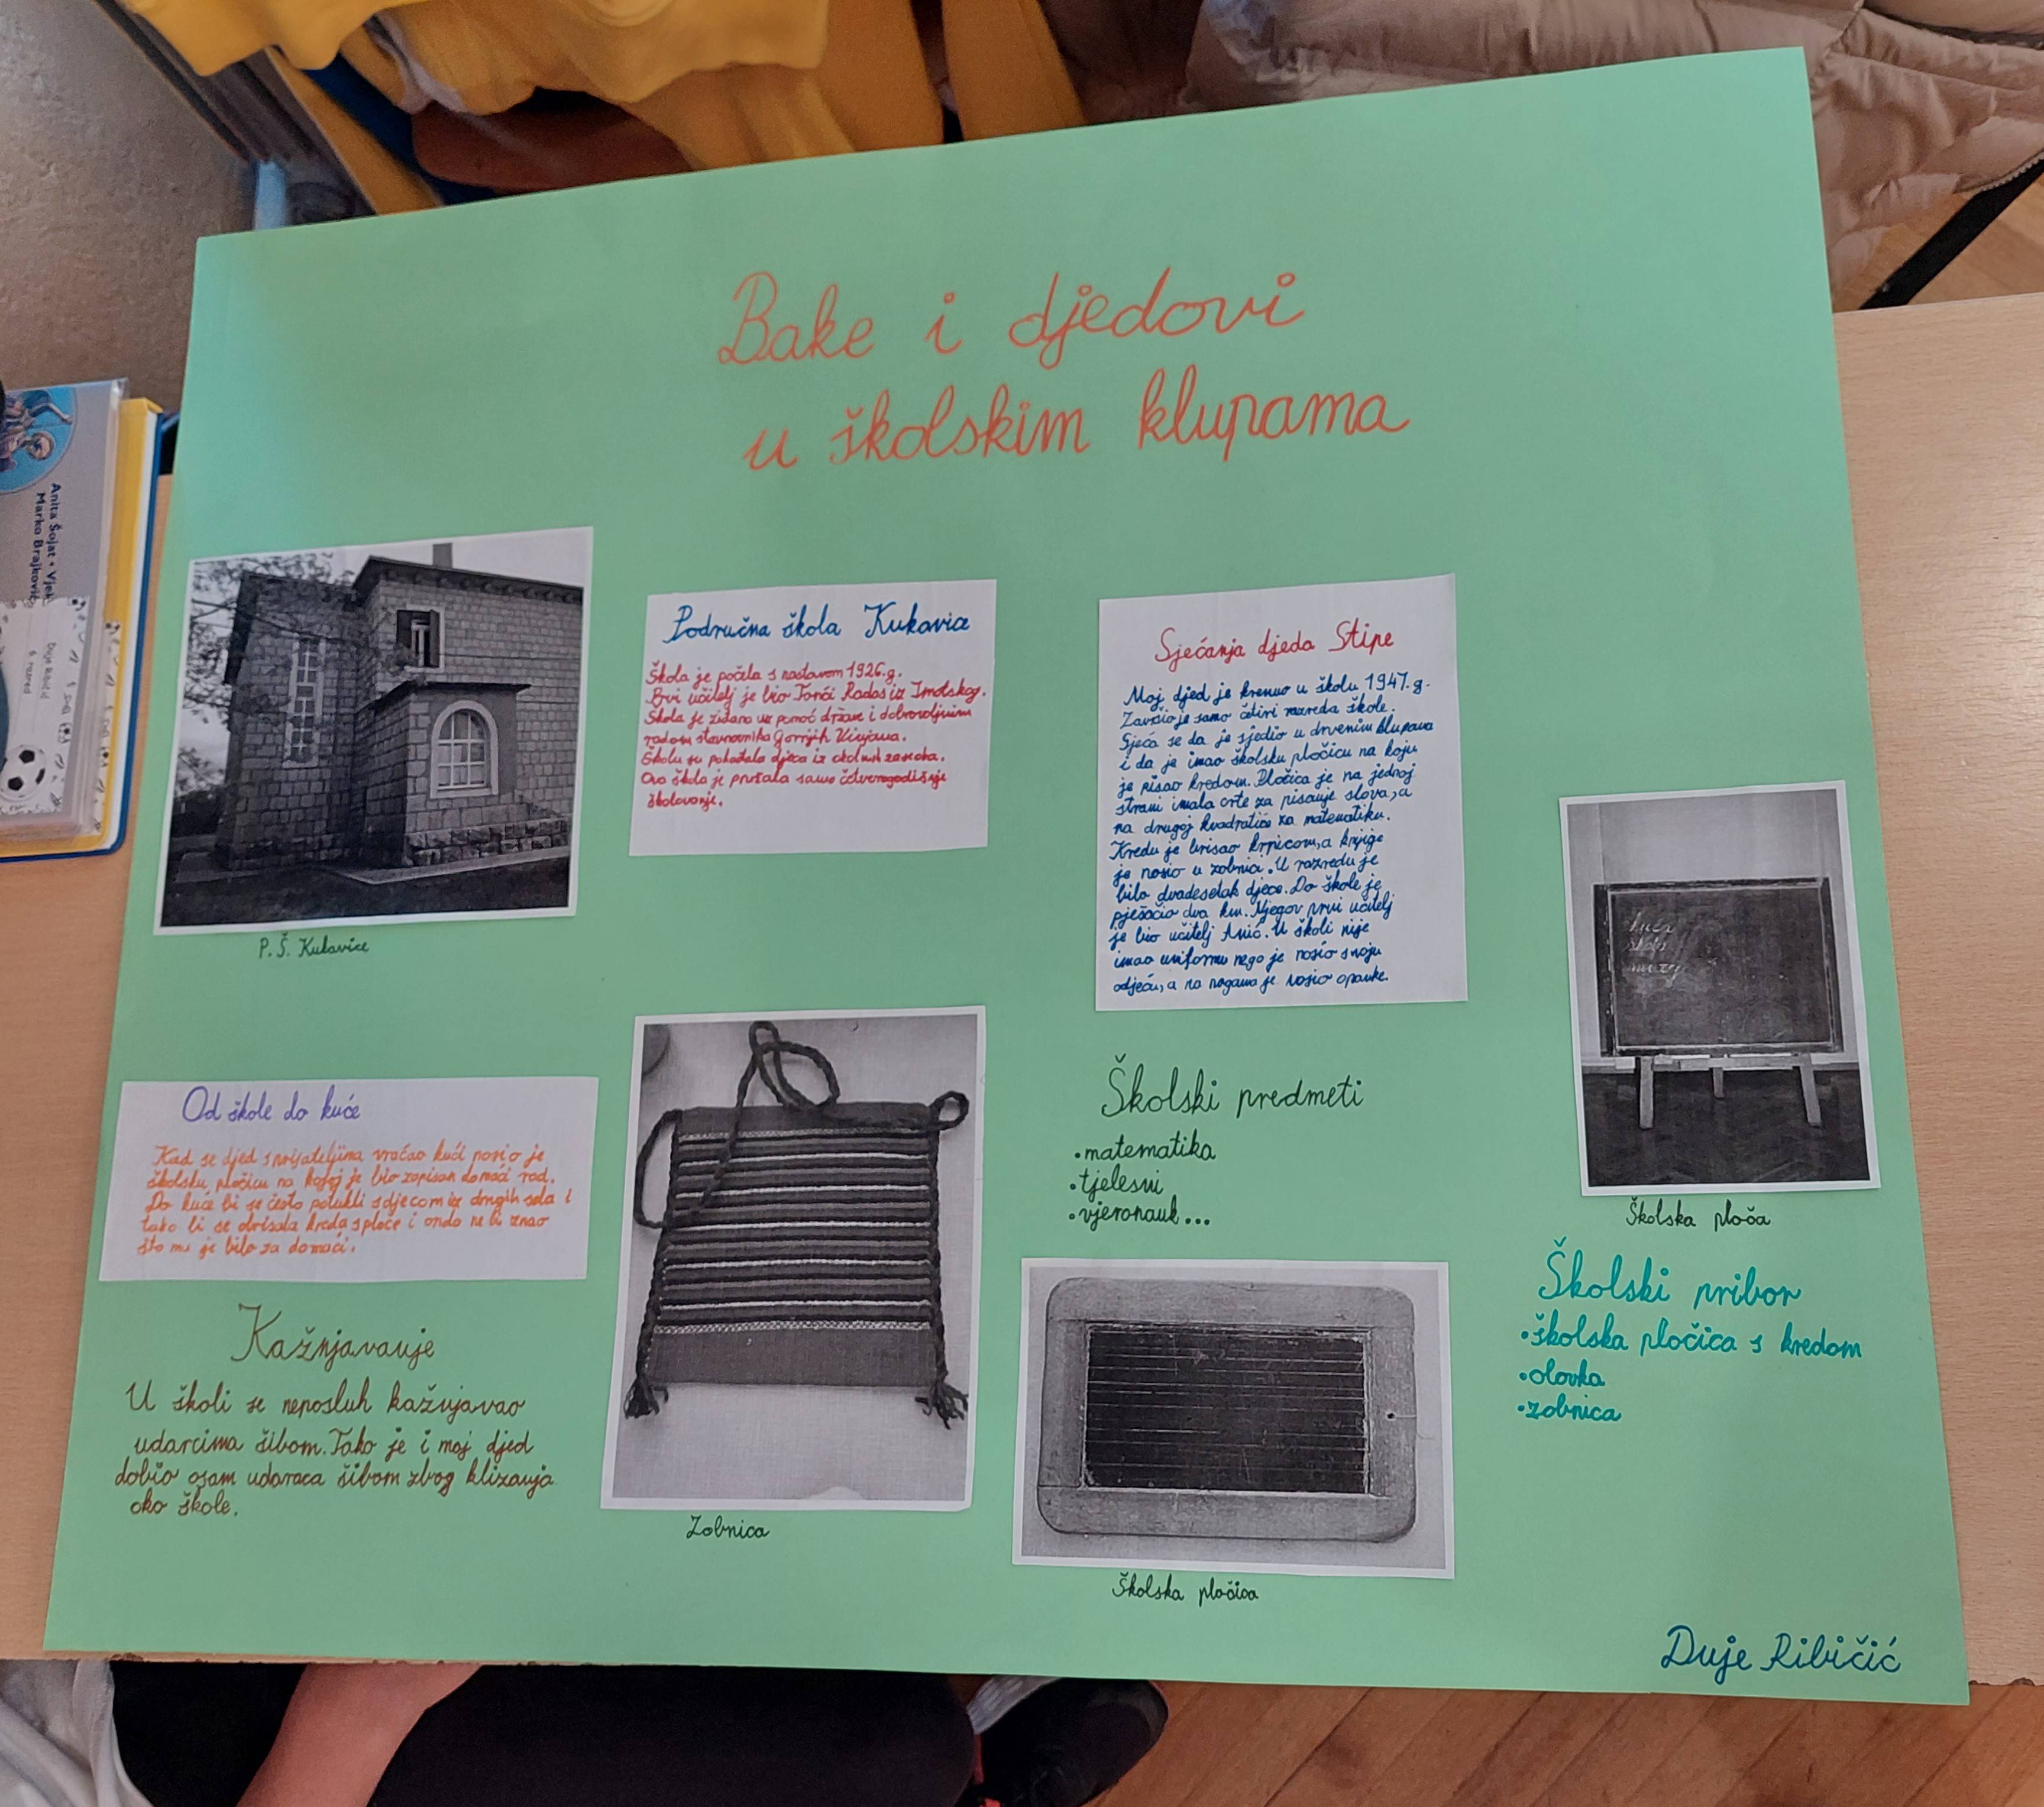 Bake i djedovi
u školskim klupama
Anita Šojat • Vjek
Marko Brajković
Duje Ribičić
5 razred
P. Š. Kukavice
Područna škola Kukavice
Škola je počela s nastavom 1926.g.
Prvi učitelj je bio Tonči Radoš iz Imotskog.
Škola je zidana uz pomoć države i dobrovoljnim
radom stanovnika Gornjih Vinjana.
Školu su pohađala djeca iz okolnih zaseoka.
Ova škola je pružala samo četverogodišnje
školovanje.
Sjećanja djeda Stipe
Moj djed je krenuo u školu 1947.g.
Završio je samo četiri razreda škole.
Sjeća se da je sjedio u drvenim klupama
i da je imao školsku pločicu na koju
je pisao kredom. Pločica je na jednoj
strani imala crte za pisanje slova, a
na drugoj kvadratiće za matematiku.
Kredu je brisao krpicom, a knjige
je nosio u zobnici. U razredu je
bilo dvadesetak djece. Do škole je
pješačio dva km. Njegov prvi učitelj
je bio učitelj Anić. U školi nije
imao uniformu nego je nosio svoju
odjeću, a na nogama je nosio opanke.
Od škole do kuće
Kad se djed s prijateljima vraćao kući nosio je
školsku pločicu na kojoj je bio zapisan domaći rad.
Do kuće bi se često potukli s djecom iz drugih sela i
tako bi se obrisala kreda s ploče i onda ne bi znao
što mu je bilo za domaći.
Kažnjavanje
U školi se neposluh kažnjavao
udarcima šibom. Tako je i moj djed
dobio osam udaraca šibom zbog klizanja
oko škole.
Zobnica
Školski predmeti
•matematika
•tjelesni
•vjeronauk...
Školska pločica
kuća
škola
Školska ploča
Školski pribor
•školska pločica s kredom
•olovka
•zobnica
Duje Ribičić